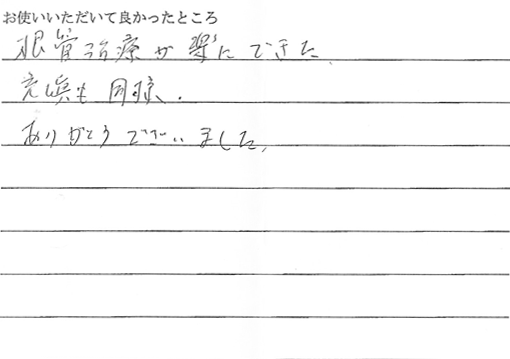 お使いいただいて良かったところ
根管治療が楽にできた。
充填も同様.
ありがとうございました。